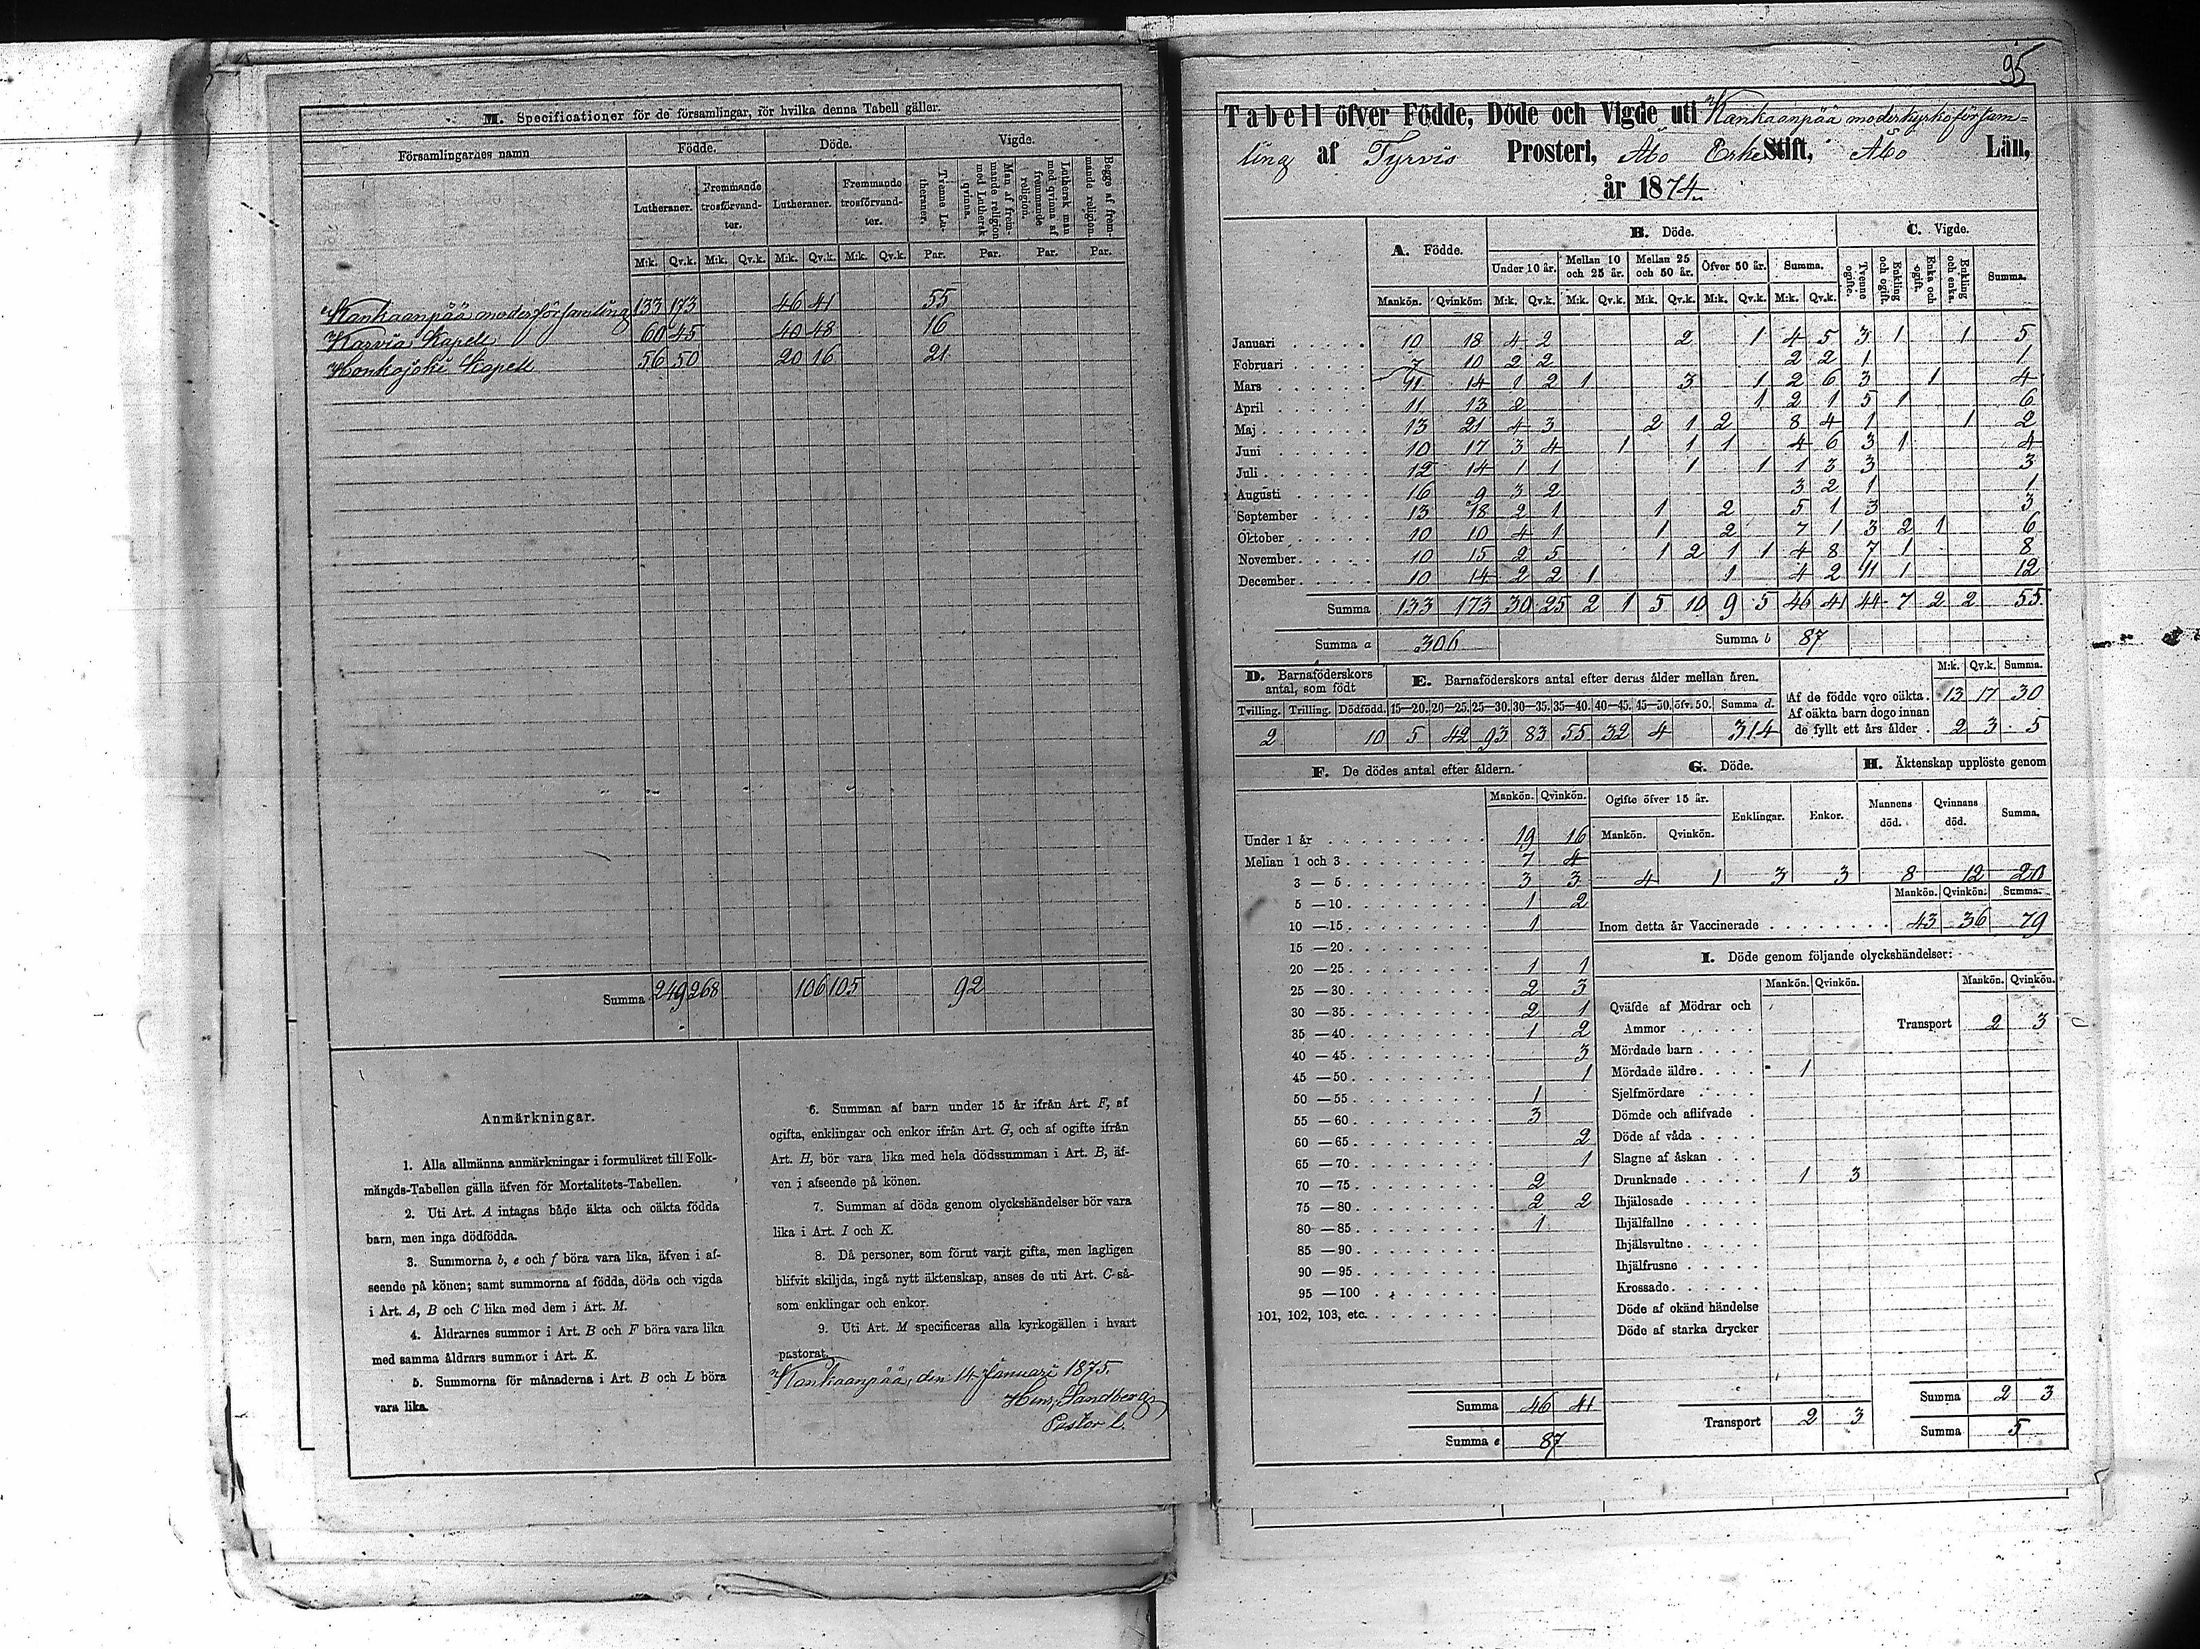 M. Specificationer för de församlingar, för hvilka denna Tabell gäller.
Församlingarnes namn Födde. Döde. Vigde.
Lutheraner. Fremmande trosförvandter. Lutheraner. Fremmande trosförvandter. Trenne Lutheraner. Man af fremmande religion med Luthersk qvinna. Luthersk man med qvinna af fremmande religion. Begge af fremmande religion.
M:k. Qv.k. M:k. Qv.k. M:k. Qv.k. M:k. Qv.k. Par. Par. Par. Par.
Kankaanpää moderförsamling 133 173 46 41 55
Karvia Kapell 60 45 40 48 16
Honkajoki Kapell 56 50 20 16 21
Summa 249 268 106 105 92
Anmärkningar.
1. Alla allmänna anmärkningar i formuläret till Folk-
mängds-Tabellen gälla äfven för Mortalitets-Tabellen.
2. Uti Art. A intagas både äkta och oäkta födda
barn, men inga dödfödda.
3. Summorna b, e och f böra vara lika, äfven i af-
seende på könen; samt summorna af födda, döda och vigda
i Art. A, B och C lika med dem i Art. M.
4. Åldrarnes summor i Art. B och F böra vara lika
med samma åldrars summor i Art. K.
5. Summorna för månaderna i Art. B och L böra
vara lika.
6. Summan af barn under 15 år ifrån Art. F, af
ogifta, enklingar och enkor ifrån Art. G, och af ogifte ifrån
Art. H, bör vara lika med hela dödssumman i Art. B, äf-
ven i afseende på könen.
7. Summan af döda genom olyckshändelser bör vara
lika i Art. I och K.
8. Då personer, som förut varit gifta, men lagligen
blifvit skiljda, ingå nytt äktenskap, anses de uti Art. C så-
som enklingar och enkor.
9. Uti Art. M specificeras alla kyrkogällen i hvart
pastorat.
Kankaanpää, den 14 Januari 1875.
Hinr. Sandberg
Pastor l.
95
Tabell öfver Födde, Döde och Vigde uti Kankaanpää moderkyrkoförsam=
ling af Tyrvis Prosteri, Åbo Erke Stift, Åbo Län,
år 1874.
A. Födde. B. Döde. C. Vigde.
Under 10 år. Mellan 10 och 25 år. Mellan 25 och 50 år. Öfver 50 år. Summa. Trenne ogifte. Enkling och ogift. Enka och ogift. Enkling och enka. Summa.
Mankön. Qvinkön. M:k. Qv.k. M:k. Qv.k. M:k. Qv.k. M:k. Qv.k. M:k. Qv.k.
Januari 10 18 4 2 2 1 4 5 3 1 1 5
Februari 7 10 2 2 2 2 1 1
Mars 11 14 1 2 1 3 1 2 6 3 1 4
April 11 13 2 1 2 1 5 1 6
Maj 13 21 4 3 2 1 2 8 4 1 1 2
Juni 10 17 3 4 1 1 1 4 6 3 1 4
Juli 12 14 1 1 1 1 1 3 3 3
Augusti 16 9 3 2 3 2 1 1
September 13 18 2 1 1 2 5 1 3 3
Oktober 10 10 4 1 1 2 7 1 3 2 1 6
November 10 15 2 5 1 2 1 1 4 8 7 1 8
December 10 14 2 2 1 1 4 2 11 1 12
Summa 133 173 30 25 2 1 5 10 9 5 46 41 44 7 2 2 55
Summa a 306 Summa b 87
D. Barnaföderskors antal, som född E. Barnaföderskors antal efter deras ålder mellan åren. M:k. Qv.k. Summa.
Tvilling. Trilling. Dödfödd. 15—20. 20—25. 25—30. 30—35. 35—40. 40—45. 45—50. öfv. 50. Summa d.
2 10 5 42 93 83 55 32 4 314
Af de födde voro oäkta. 13 17 30
Af oäkta barn dogo innan
de fyllt ett års ålder. 2 3 5
F. De dödes antal efter åldern. G. Döde. H. Äktenskap upplöste genom
Mankön. Qvinkön. Ogifte öfver 15 år. Enklingar. Enkor. Mannens död. Qvinnans död. Summa.
Mankön. Qvinkön.
4 1 3 3 8 12 20
Mankön. Qvinkön. Summa.
Inom detta år Vaccinerade 43 36 79
Under 1 år 19 16
Mellan 1 och 3 7 4
3 — 5 3 3
5 — 10 1 2
10 — 15 1
15 — 20
20 — 25 1 1
25 — 30 2 3
30 — 35 2 1
35 — 40 1 2
40 — 45 3
45 — 50 1
50 — 55 1
55 — 60 3
60 — 65 2
65 — 70 1
70 — 75 2
75 — 80 2 2
80 — 85 1
85 — 90
90 — 95
95 — 100
101, 102, 103, etc.
Summa 46 41
Summa e 87
I. Döde genom följande olyckshändelser:
Mankön. Qvinkön. Mankön. Qvinkön.
Qväfde af Mödrar och
Ammor
Mördade barn
Mördade äldre 1
Sjelfmördare
Dömde och aflifvade
Döde af våda
Slagne af åskan
Drunknade 1 3
Ihjälosade
Ihjälfallne
Ihjälsvultne
Ihjälfrusne
Krossade
Döde af okänd händelse
Döde af starka drycker
Transport 2 3
Transport 2 3
Summa 2 3
Summa 5